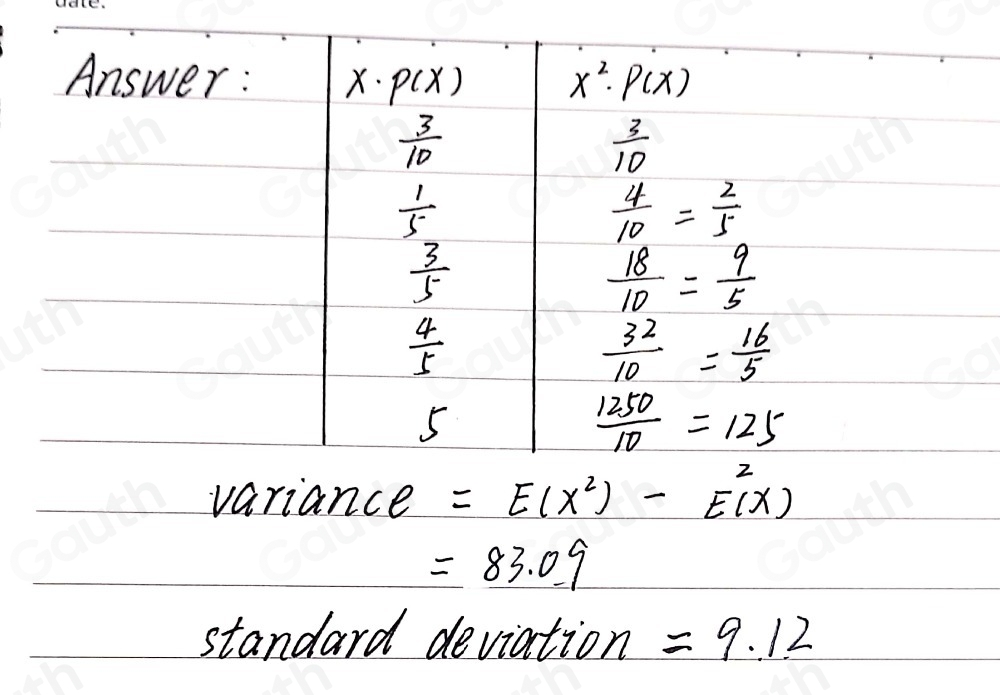 date.
Answer: X · P(X) X² · P(X)
3/10 3/10
1/5 4/10 = 2/5
3/5 18/10 = 9/5
4/5 32/10 = 16/5
5 1250/10 = 125
variance = E(X²) - E²(X)
= 83.09
standard deviation = 9.12
Gauth